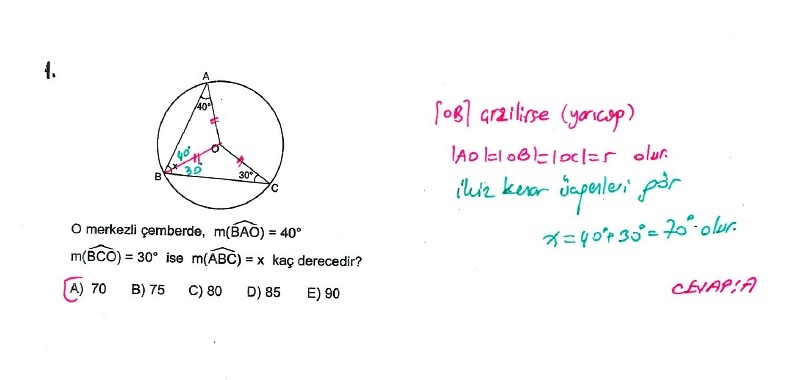 1.
A
40°
O
40°
x
30°
30°
B
C
O merkezli çemberde, m(BAO) = 40°
m(BCO) = 30° ise m(ABC) = x kaç derecedir?
A) 70 B) 75 C) 80 D) 85 E) 90
[OB] çizilirse (yarıçap)
|AO|=|OB|=|OC|=r olur.
ikiz kenar üçgenleri
x=40°+30°=70° olur.
CEVAP:A